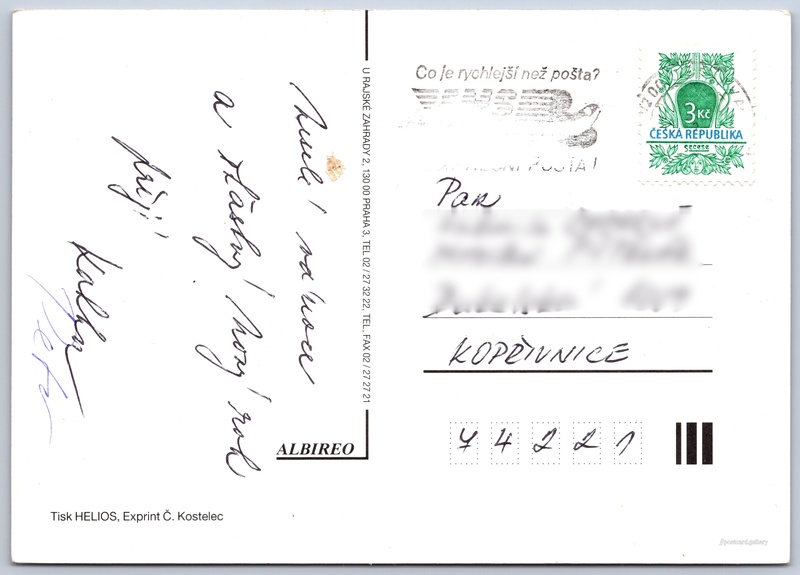 Veselé vánoce
a šťastný nový rok
přejí
U RAJSKÉ ZAHRADY 2, 130 00 PRAHA 3, TEL 02 / 27 32 22, TEL, FAX 02 / 27 27 21
ALBIREO
Tisk HELIOS, Exprint Č. Kostelec
Co je rychlejší než pošta?
EMS
POŠTA!
3 Kč
ČESKÁ REPUBLIKA
secese
Pan
KOPŘIVNICE
74221